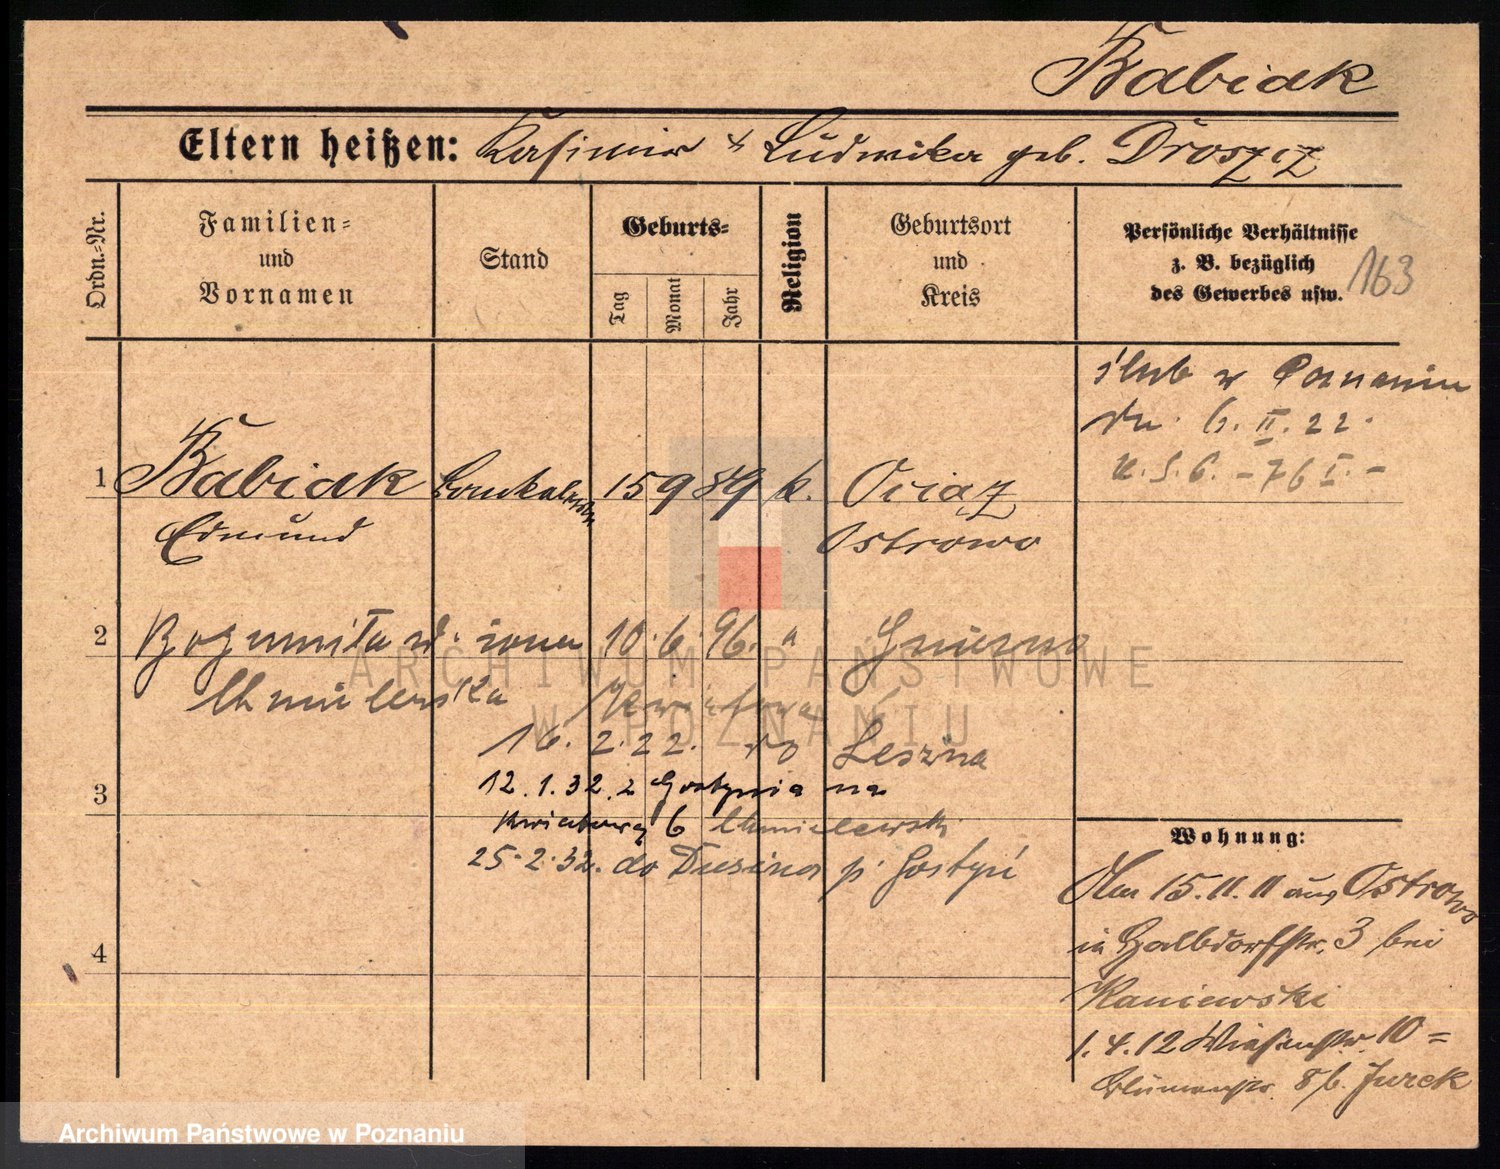 Babiak
Eltern heißen: Kasimir & Ludwika geb. Droszcz
Ordn.-Nr.
Familien-
und
Vornamen
Stand
Geburts-
Tag
Monat
Jahr
Religion
Geburtsort
und
Kreis
Persönliche Verhältnisse
z. B. bezüglich
des Gewerbes usw.
163
ślub w Poznaniu
dn. 6. II. 22.
1 Babiak 15 9 89 k. Ociąz
Edmund Ostrowo
2 Bogumiła ur. żona 10. 6. 96. " Gniezno
Chmielewska
16. 2. 22. do Leszna
3 12. 1. 32. z Gostynia na
Kwiatową 6 Chmielewski
25. 2. 32. do Dusina p. Gostyń
4
Wohnung:
Am 15. 11. 11 aus Ostrowo
in Halbdorfstr. 3 bei
Kaniewski
1. 4. 12 Wiesenstr. 10 =
Blumenstr. 8 b. Jurek
ARCHIWUM PAŃSTWOWE
W POZNANIU
Archiwum Państwowe w Poznaniu